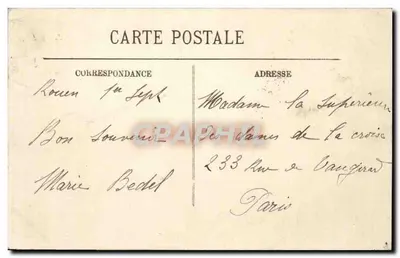 CARTE POSTALE
CORRESPONDANCE
ADRESSE
Rouen 1er Sept
Bon Souvenir
Marie Bedel
Madame la Supérieure
des Dames de la croix
233 Rue de Vaugirard
Paris